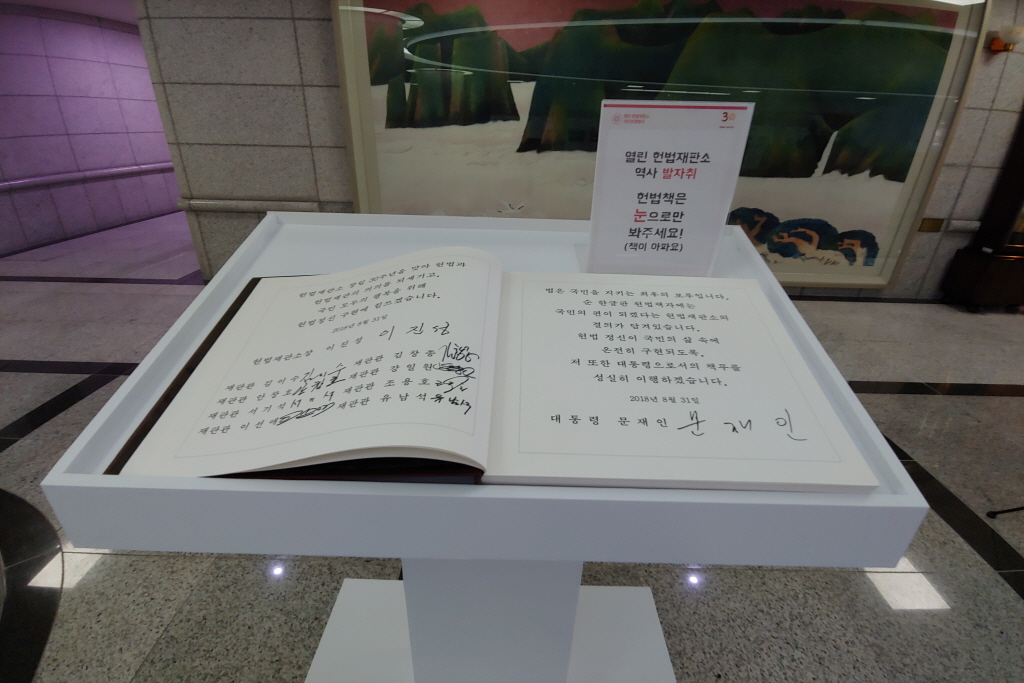 열린 헌법재판소
역사 발자취
헌법책은
눈으로만
봐주세요!
(책이 아파요)
헌법재판소 창립 30주년을 맞아 헌법과
헌법재판의 의미를 되새기고,
국민 모두의 행복을 위해
헌법정신 구현에 힘쓰겠습니다.
2018년 8월 31일
헌법재판소장 이진성 이 진 성
재판관 김이수 김이수 재판관 김창종
재판관 안창호 재판관 강일원
재판관 서기석 재판관 조용호
재판관 이선애 재판관 유남석
법은 국민을 지키는 최후의 보루입니다.
순 한글판 헌법책자에는
국민의 편이 되겠다는 헌법재판소의
결의가 담겨있습니다.
헌법 정신이 국민의 삶 속에
온전히 구현되도록,
저 또한 대통령으로서의 책무를
성실히 이행하겠습니다.
2018년 8월 31일
대통령 문재인 문 재 인